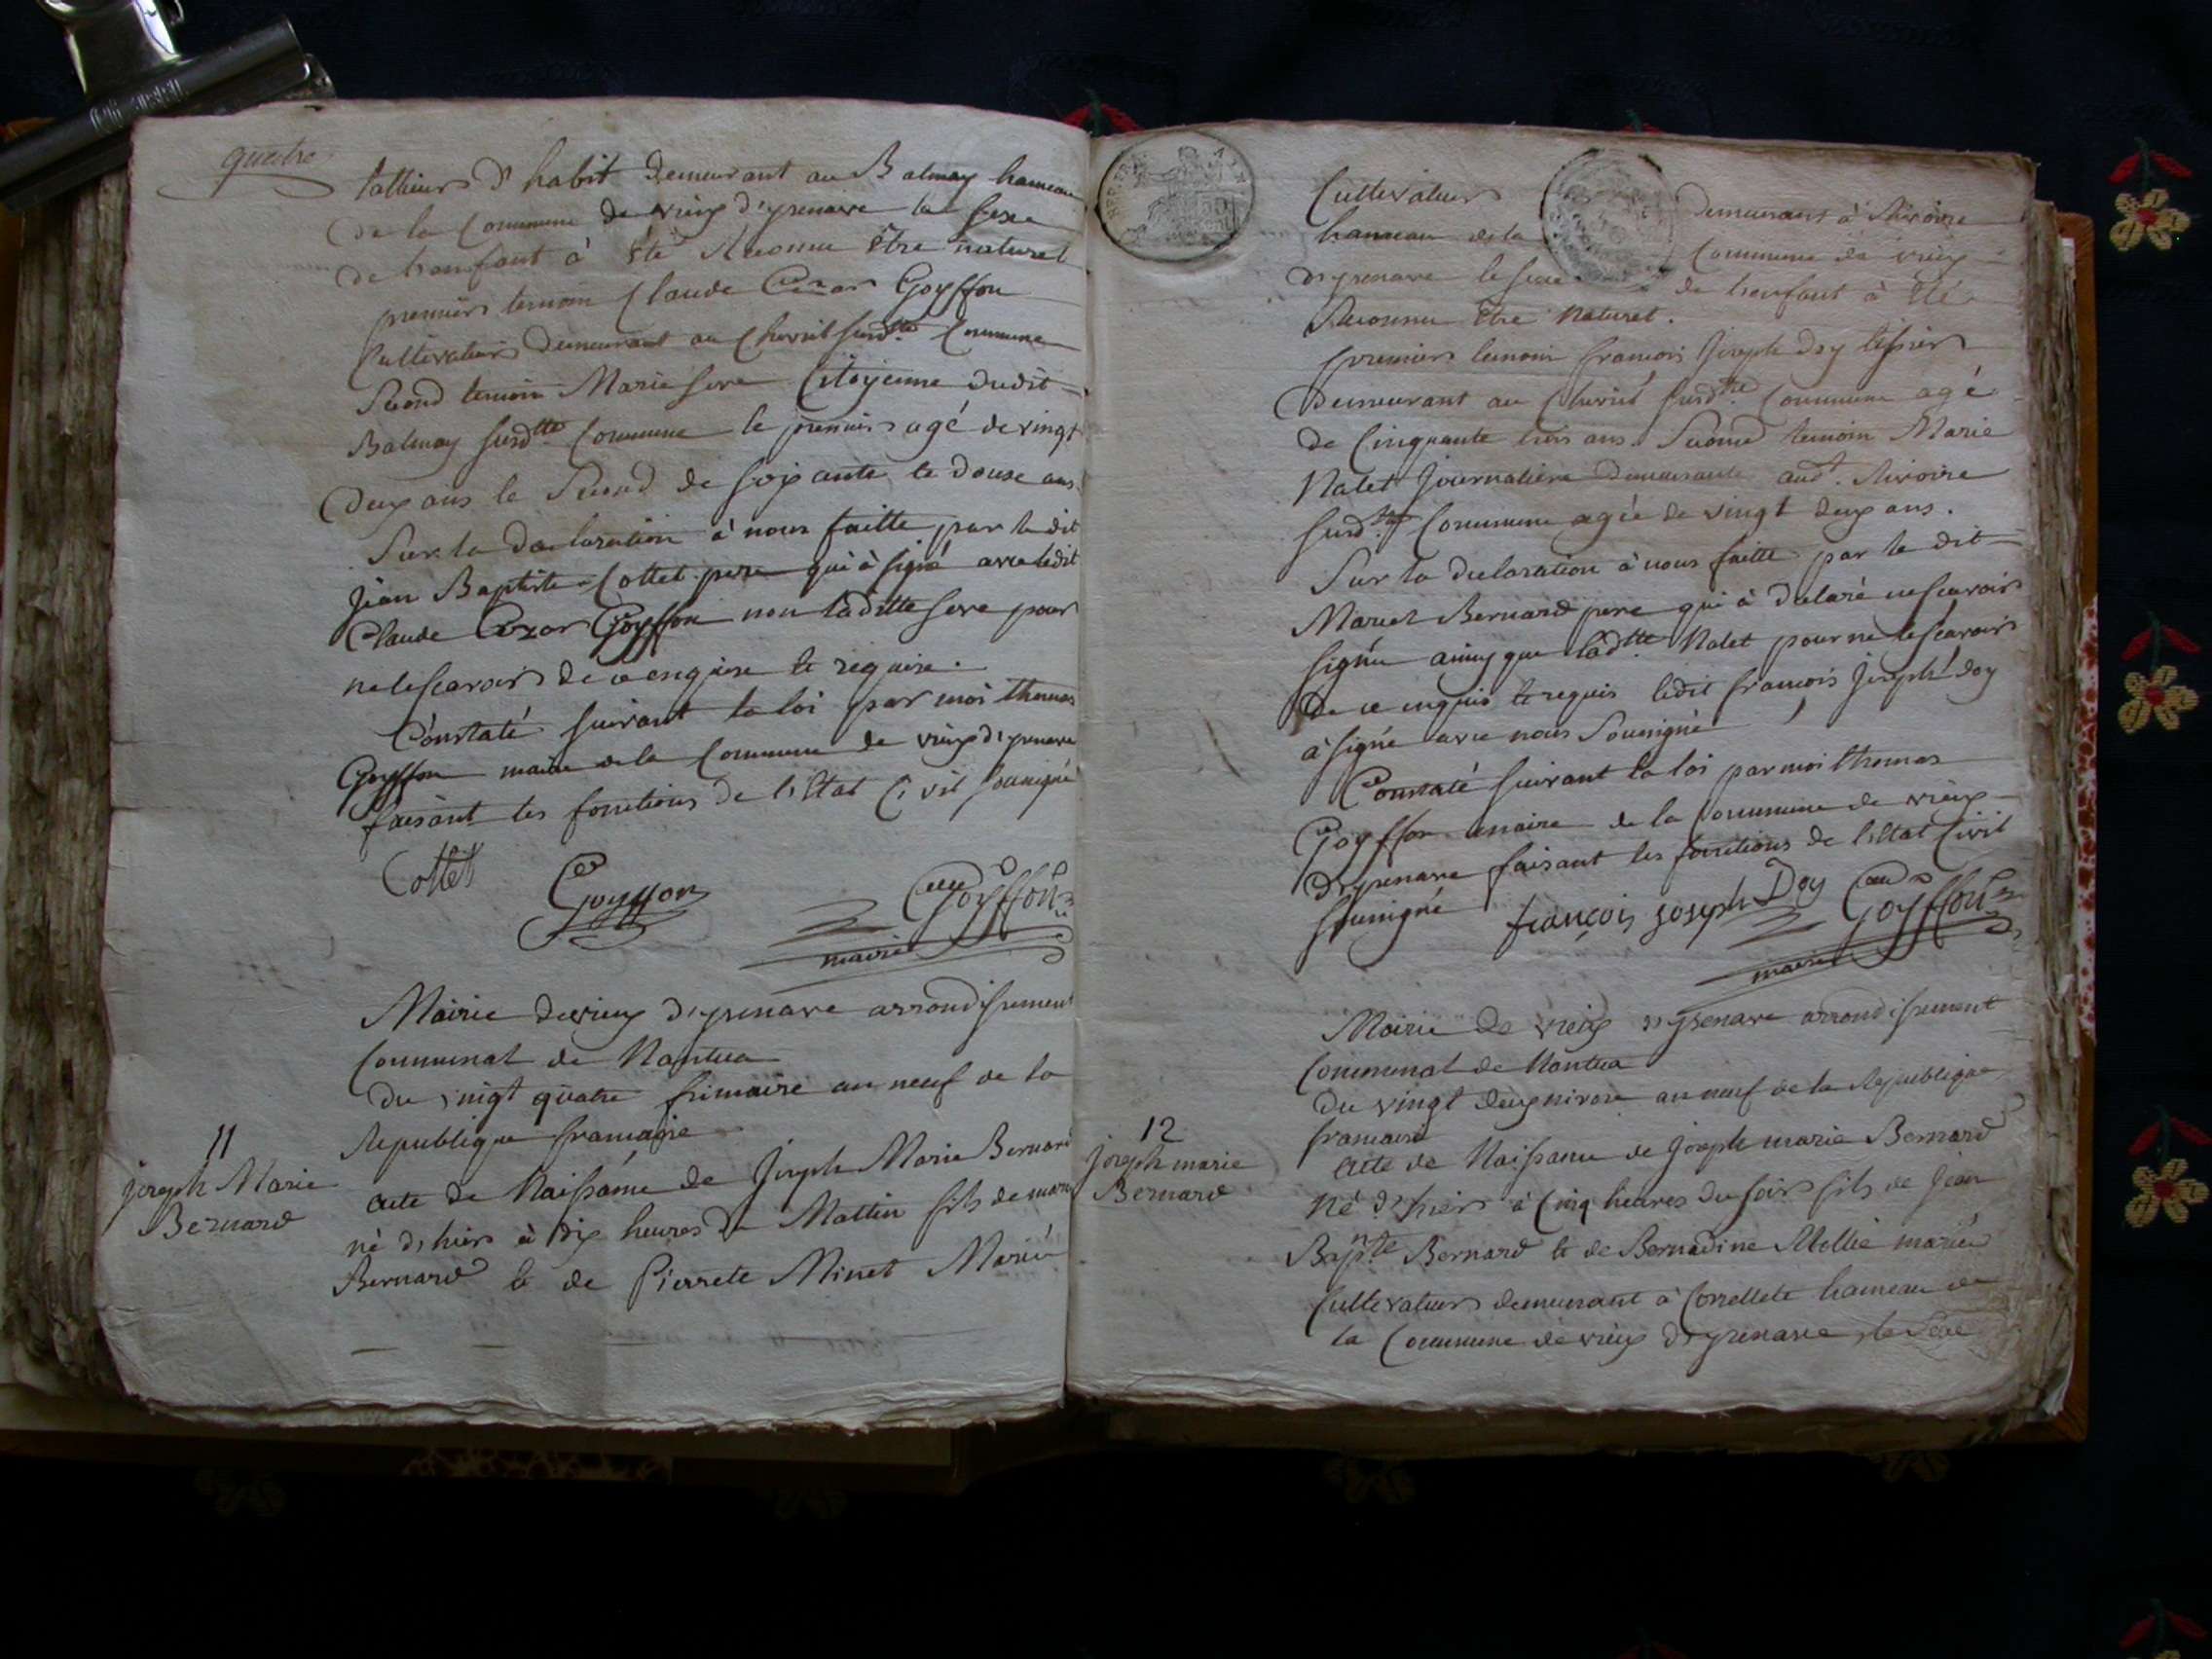 quatre
tallieur d'habit demeurant au Balmay hameau
de la Commune de vieux d'yzenave le sexe
de l'enfant à été Reconnu être naturel
premier temoin Claude Cezar Goyffon
Cultivateur demeurant au Chevril susdtte Commune
Second temoin Marie sere Citoyenne dudit
Balmay susdtte Commune le premier agé de vingt
deux ans le Second de soixante et douse ans
Sur la declaration à nous faitte par le dit
Jean Baptiste Cottet pere qui à signé avec ledit
Claude Cezar Goyffon non laditte sere pour
ne le scavoir de ce enquise et requise.
Constaté suivant la loi par moi thomas
Goyffon maire de la Commune de vieux d'yzenave
faisant les fonctions de l'Etat Civil sousigné
Cottet Goyffon Goyffon
maire
Mairie de vieux d'yzenave arrondissement
Communal de Nantua
du vingt quatre frimaire an neuf de la
Republique francaise
11
joseph Marie
Bernard
acte de Naissance de Joseph Marie Bernard
né d'hier à dix heures du Mattin fils de
Bernard et de Pierrete Minet Mariés
Cultivateur demeurant à Rivoire
hameau de la Commune de vieux
d'yzenave le sexe de l'enfant à été
Reconnu être Naturel.
premier temoin francois Joseph doy
Demeurant au Chevril susdtte Commune agé
de Cinquante trois ans. Second temoin Marie
Nalet Journaliere demeurante audt. Rivoire
susdtte Commune agée de vingt deux ans.
Sur la declaration à nous faitte par le dit
Bernard pere qui à declaré ne scavoir
signer ainsy que ladtte Nalet pour ne le scavoir
de ce enquis et requis ledit francois Joseph doy
à signé avec nous Sousigné
Constaté suivant la loi par moi thomas
Goyffon maire de la Commune de vieux
d'yzenave faisant les fonctions de l'Etat Civil
sousigné françois joseph Doy Goyffon
maire
Mairie de vieux d'yzenave arrondissement
Communal de Nantua
du vingt deux nivose an neuf de la Republique
francaise
12
joseph marie
Bernard
acte de Naissance de joseph marie Bernard
Né d'hier à Cinq heures du soir fils de Jean
Bapte Bernard et de Bernadine Mollie mariés
Cultivateur demeurant à Corellete hameau de
la Commune de vieux d'yzenave le sexe